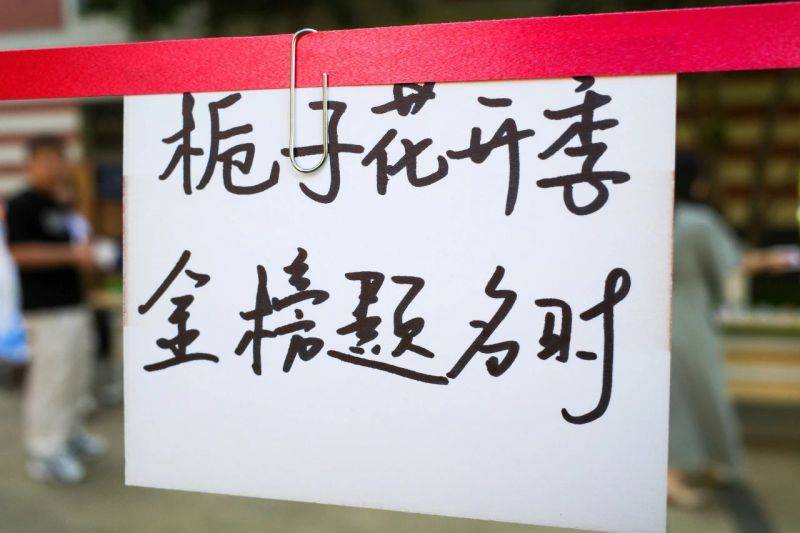 栀子花开季
金榜题名时